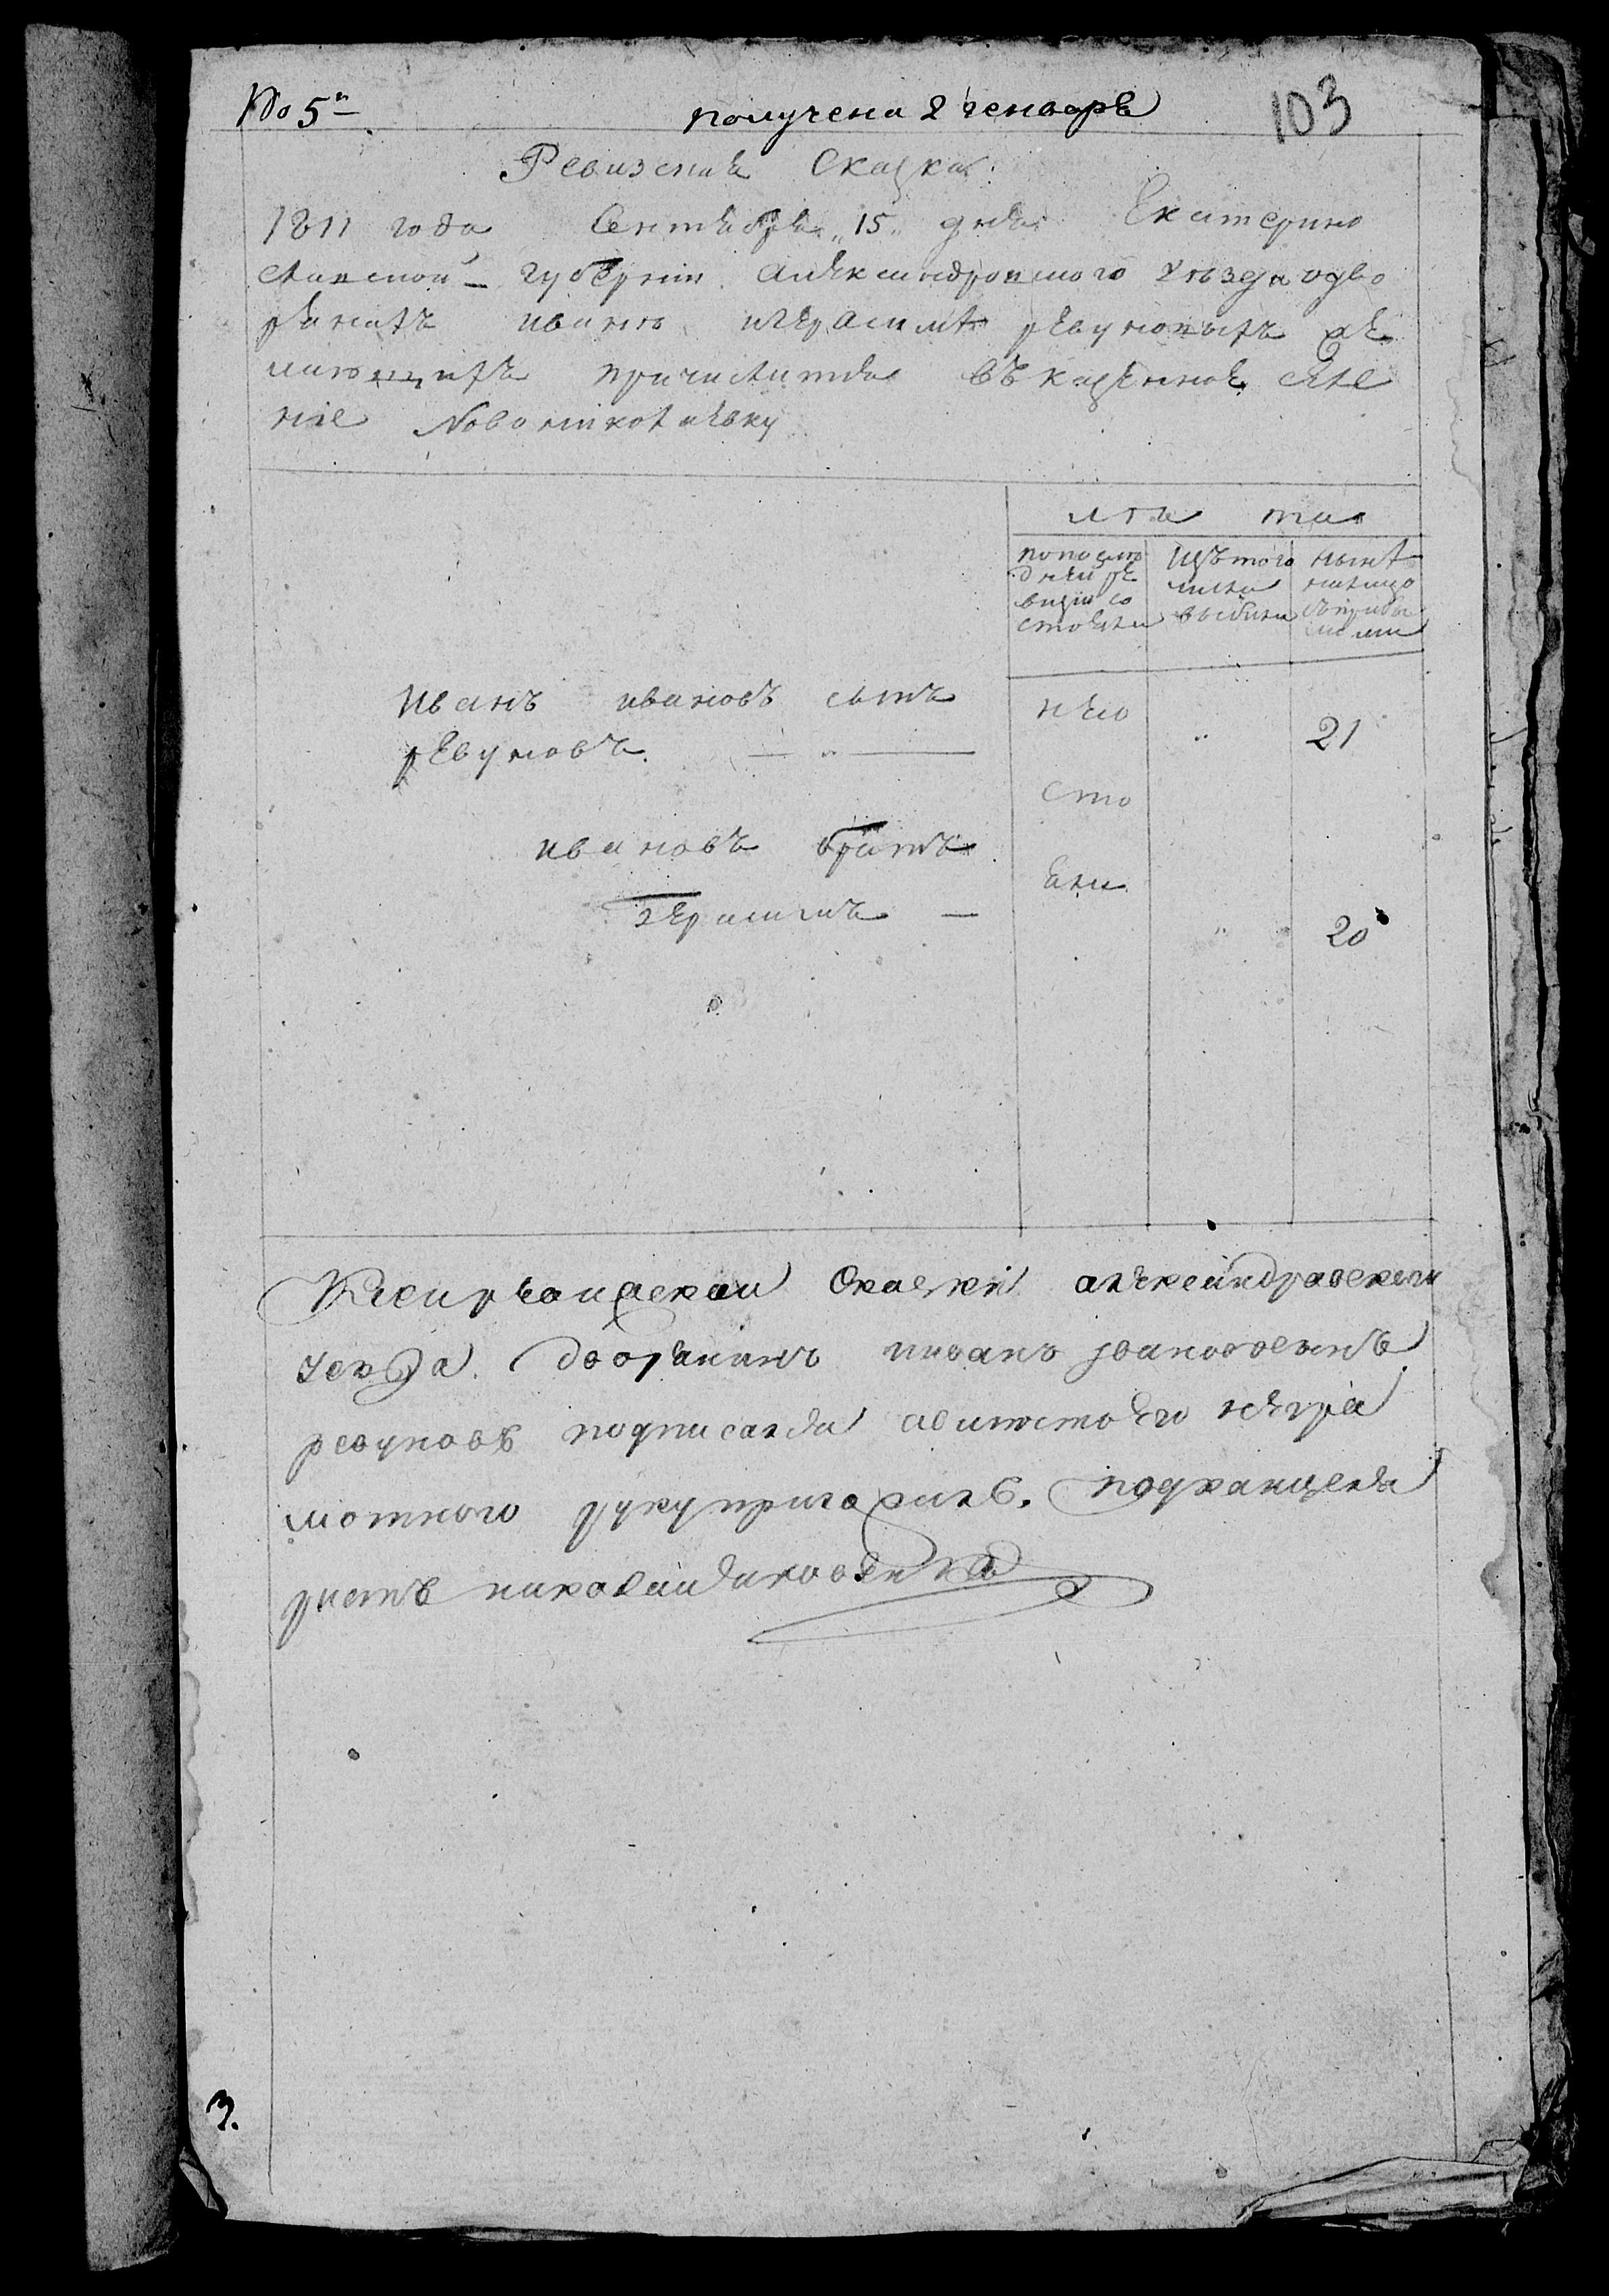 № 5й
получена 2 генваря
103
Ревизская Сказка
1811 года Сентября „15„ дня Екатерино
славской губернии Александровского уезда о дво
рянахъ Иване и Герасиме ревуновыхъ же
лающихъ причислитця въ казенное селе
ние Новониколаевку
лета
по послѣ
дней ре
визии со
стояли
изъ того
числа
выбыли
ныне
налицо
Иванъ ивановъ сынъ
ревуновъ
не
21
сто
ивановъ братъ
яли
герасимъ
20
К сей ревизской Скаски александровского
уезда дворянинъ иванъ ивановсынъ
ревуновъ подписалъся авместо его негра
мотного руку приложилъ. подканцеля
ристъ николай
3.